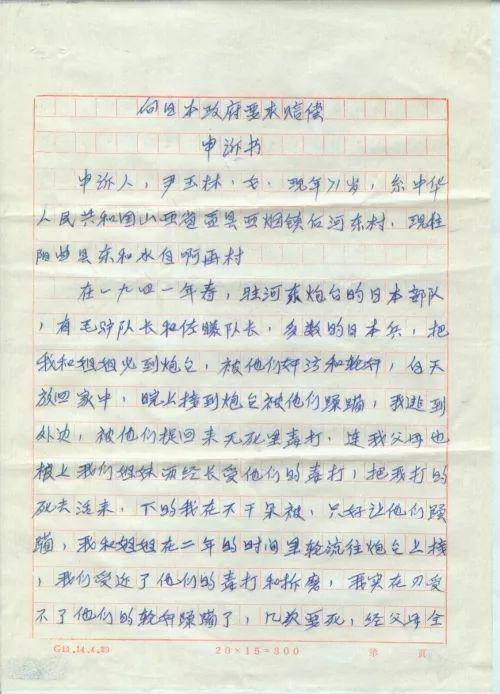 向日本政府要求赔偿
申诉书
申诉人，尹玉林，女，现年71岁，系中华
人民共和国山西省盂县西烟镇后河东村，现住
阳曲县东和水自啊再村
在一九四一年春，驻河东炮台的日本部队
，有毛驴队长和佐藤队长，多数的日本兵，把
我和姐姐必到炮台，被他们奸污和轮奸，白天
放回家中，晚上接到炮台被他们蹂蹦，我逃到
外边，被他们捉回来无死里毒打，连我父母也
根上我们姐妹两经长受他们的毒打，把我打的
死去活来，下的我在不干呆被，只好让他们蹂
蹦，我和姐姐在二年的时间里轮流往炮台上接
，我们受近了他们的毒打和折磨，我实在刃受
不了他们的轮奸蹂蹦了，几次要死，经父母全
G13.14.4.29
20×15=300
第 页